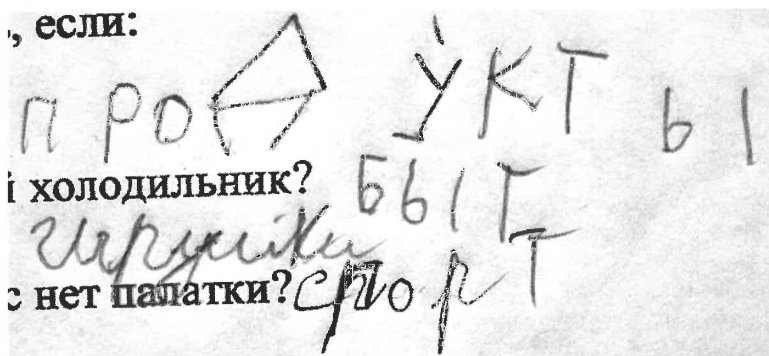 , если:
ПРОДУКТЫ
й холодильник? БЫТ
игрушки
с нет палатки? спорт